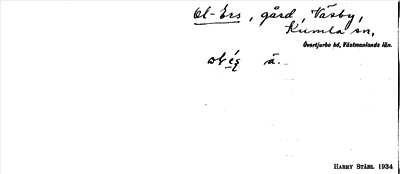 Ol-Ers, gård, Väsby,
Kumla sn,
Övertjurbo hd, Västmanlands län.
å.
HARRY STÅHL 1934